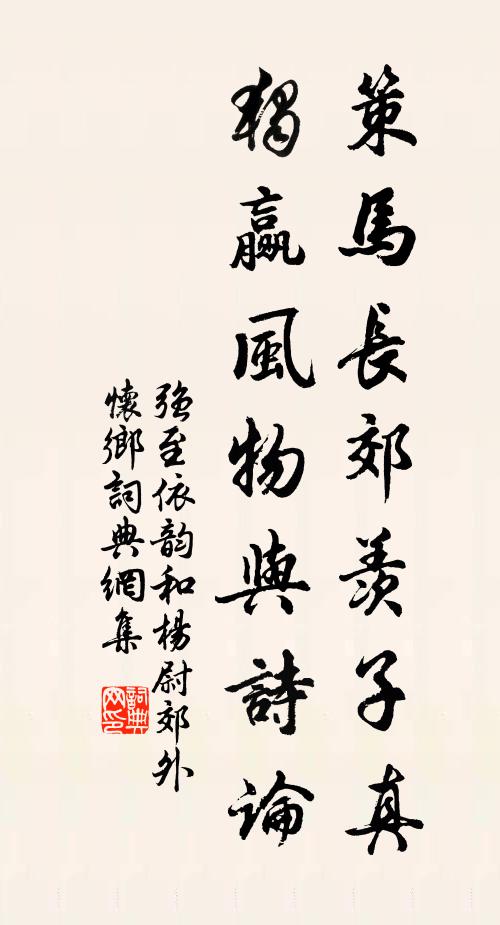 策馬長郊羨子真
獨贏風物與詩論
強至依韵和楊尉郊外
懷鄉詞典網集
詞典网印